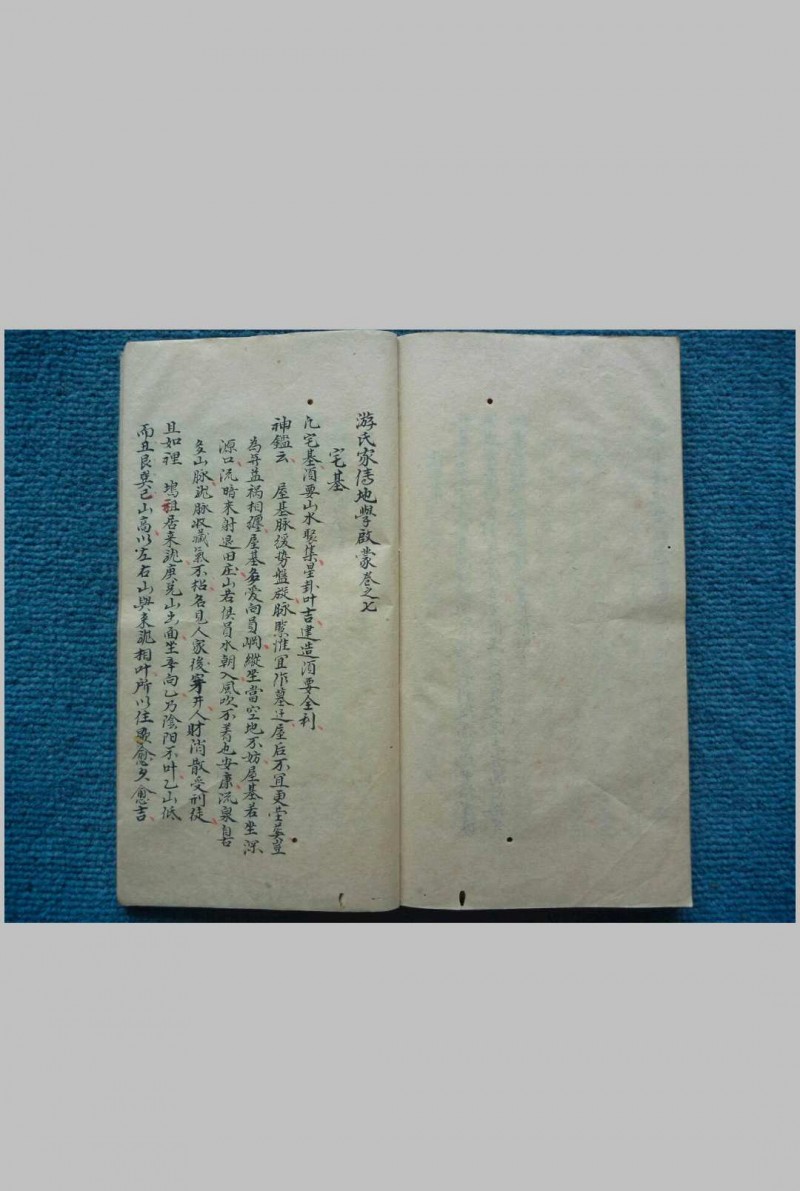 游氏家傳地學啟蒙卷之七
宅基
凢宅基須要山水聚集星卦叶吉建造須要全利
神鑑云 屋基脉緩勢盤旋脉驟惟宜作墓迁屋后不宜更营墓皇
為井益禍相纏屋基多愛向局 縱坐當空地不妨屋基若坐深
源口流時来射退田庄山若俱員水朝入風吹不着也安康流泉自古
多山脉 脉收藏氣不 各見人家後穿井人財消散受刑徒
且如裡 塢祖居来 庚兑山出面坐辛向乙乃陰阳不叶乙山低
而且艮巽巳山高以左右山與来 相叶所以住 愈久愈吉